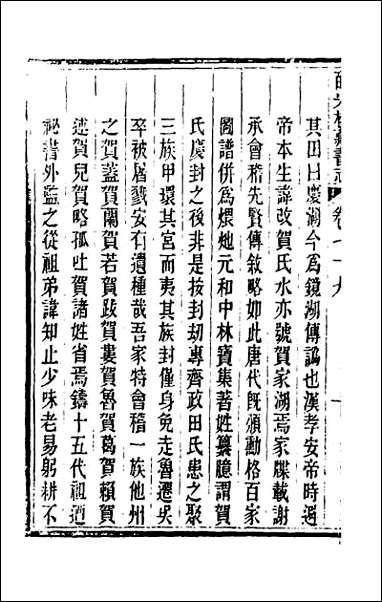 皕宋樓藏書志 卷七十九
其田曰慶湖今爲鏡湖傳譌也漢孝安帝時避
帝本生諱改賀氏水亦號賀家湖焉家牒載謝
承會稽先賢傳敘略如此唐代旣頒勳格百家
圖譜併爲煨灺元和中林寶集著姓纂臆謂賀
氏慶封之後非是按封刧專齊政田氏患之聚
三族甲環其宮而夷其族封僅身免走魯遷吳
卒被居戮安有遺種哉吾家特會稽一族他州
之賀蓋賀蘭賀若賀跋賀婁賀魯賀葛賀賴賀
述賀兒賀略孤吐賀諸姓省焉鑄十五代祖迺
祕書外監之從祖弟諱知止少味老易躬耕不